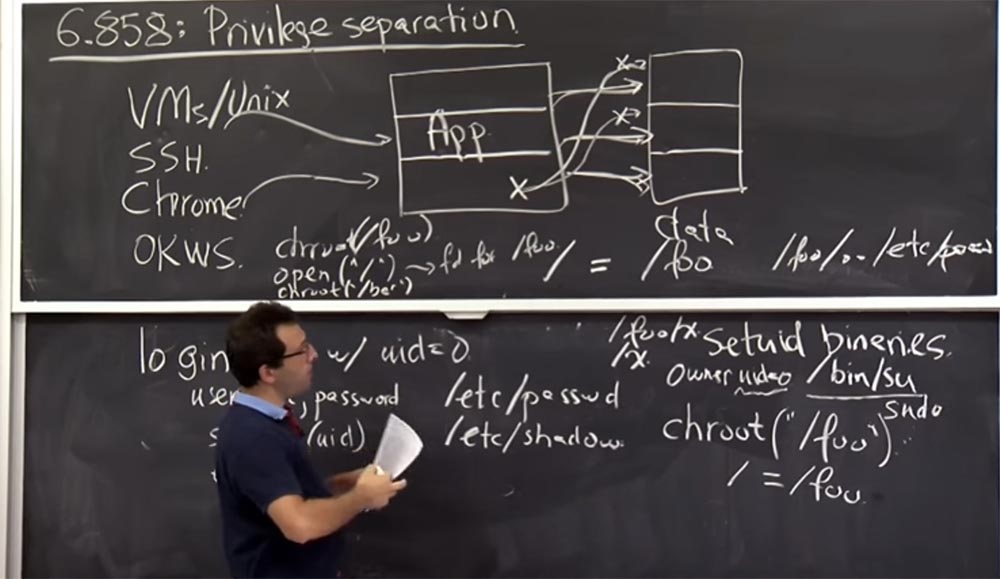 6.858: Privilege separation.
VMs/Unix
SSH.
Chrome
OKWS.
App
data
chroot(/foo)
open("/") → fd for /foo.
chroot("/bar")
/ = /foo
/foo/../etc/passwd
login w/ uid=0
user , password
(uid)
/etc/passwd
/etc/shadow.
/foo/x.
/x.
Setuid binaries.
owner uid=0 /bin/su
sudo
chroot("/foo")
/ = /foo.